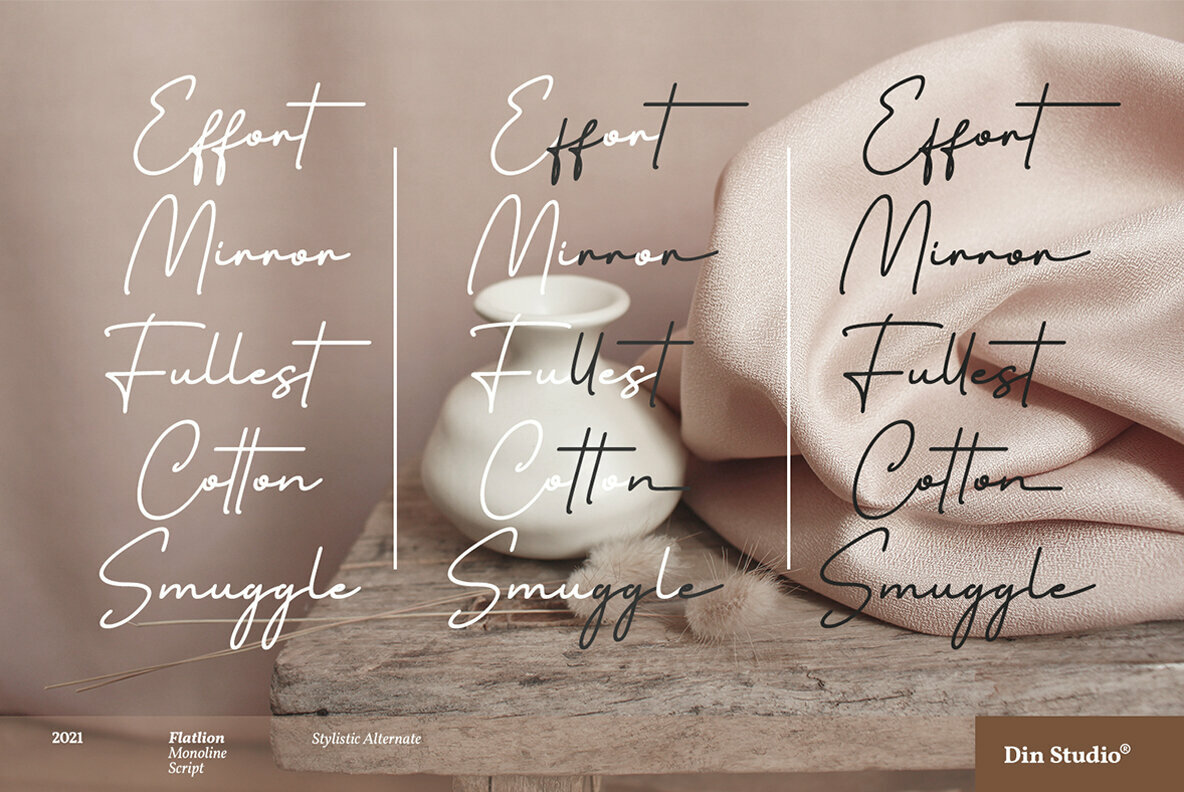 Effort
Mirror
Fullest
Cotton
Smuggle
Effort
Mirror
Fullest
Cotton
Smuggle
Effort
Mirror
Fullest
Cotton
Smuggle
2021
Flatlion
Monoline
Script
Stylistic Alternate
Din Studio®